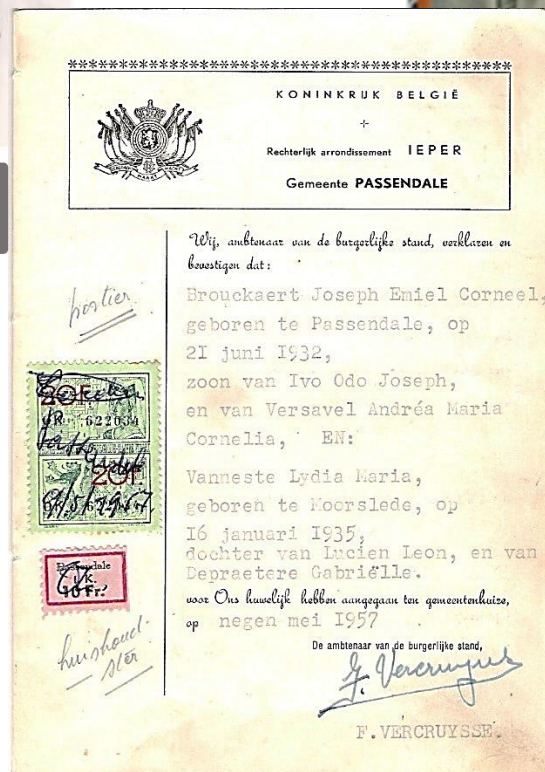 KONINKRIJK BELGIË
Rechterlijk arrondissement IEPER
Gemeente PASSENDALE
Wij, ambtenaar van de burgerlijke stand, verklaren en
bevestigen dat:
portier
Brouckaert Joseph Emiel Corneel,
geboren te Passendale, op
21 juni 1932,
zoon van Ivo Odo Joseph,
en van Versavel Andréa Maria
Cornelia, EN:
20F
622034
20F
Vanneste Lydia Maria,
geboren te Moorslede, op
16 januari 1935,
dochter van Lucien Leon, en van
Depraetere Gabriëlle.
Passendale
10 Fr.
voor Ons huwelijk hebben aangegaan ten gemeentenhuize,
op negen mei 1957
huishoud-
ster
De ambtenaar van de burgerlijke stand,
F. Vercruysse
F.VERCRUYSSE.